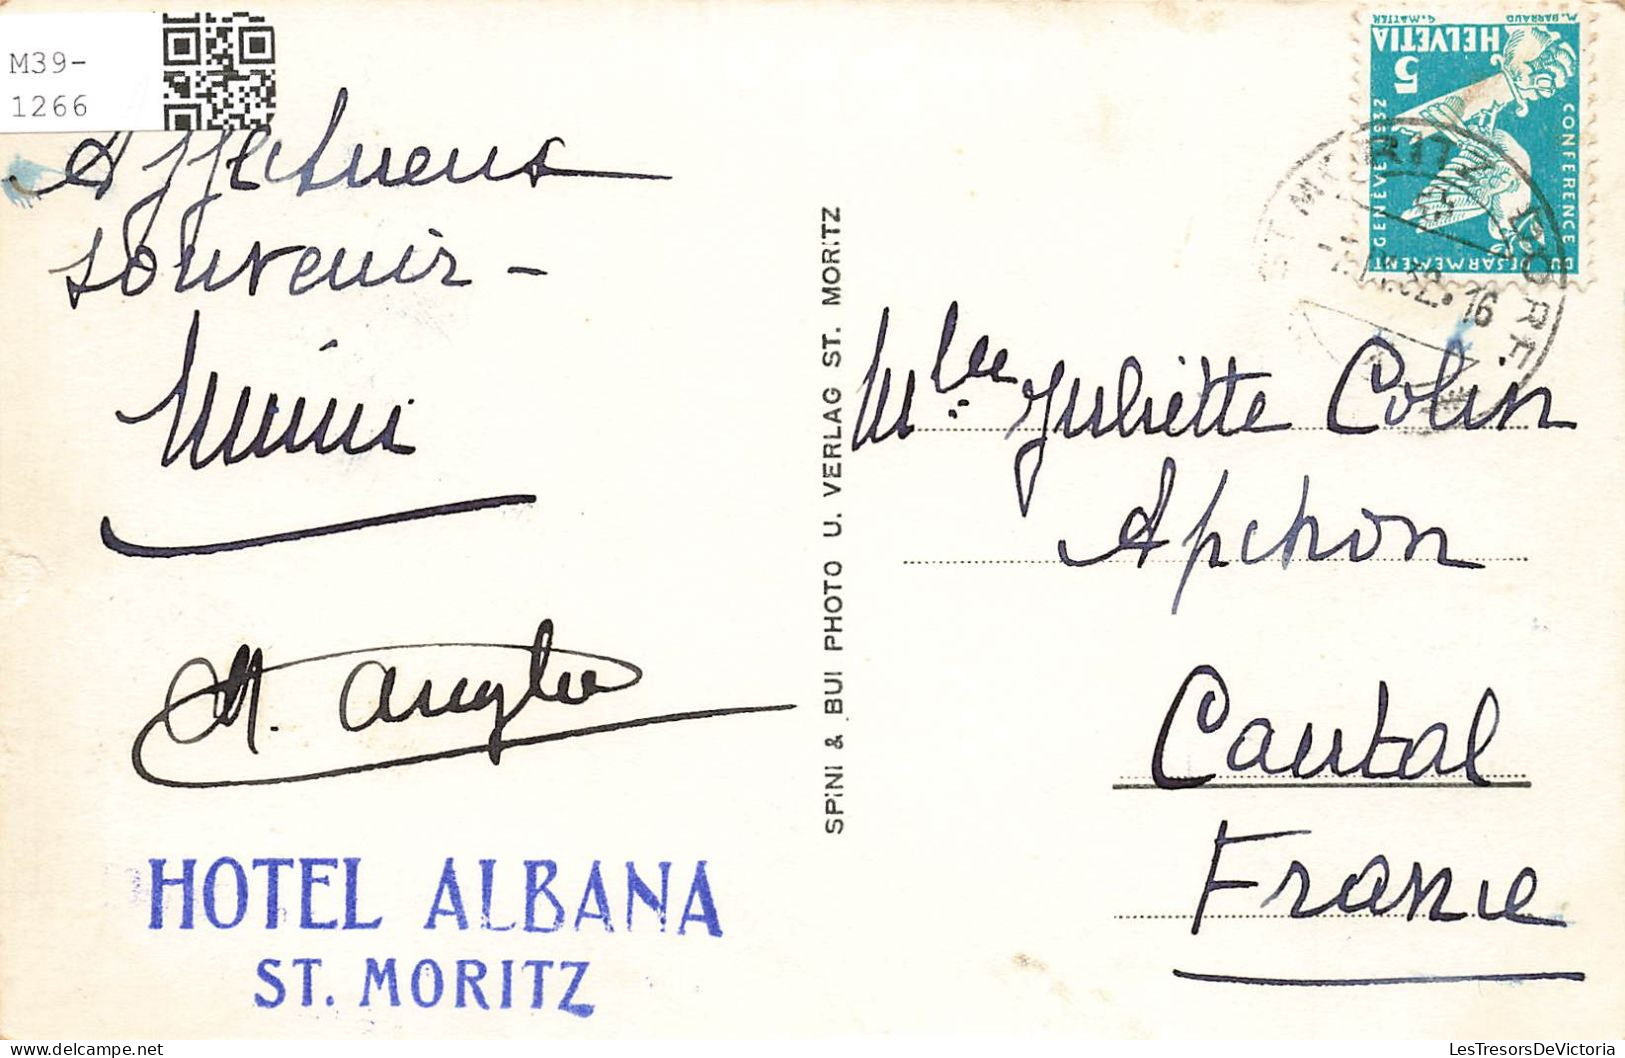 M39-
1266
Affectueux
souvenir -
Mimi
M. Anglu
HOTEL ALBANA
ST. MORITZ
SPINI & BUI PHOTO U. VERLAG ST. MORITZ
G. MATTER M. BARRAUD
HELVETIA
5
GENÈVE 1932
CONFERENCE
DU DESARMEMENT
ST. MORITZ DORF
16
Mlle Juliette Colin
Apchon
Cantal
France
LesTresorsDeVictoria